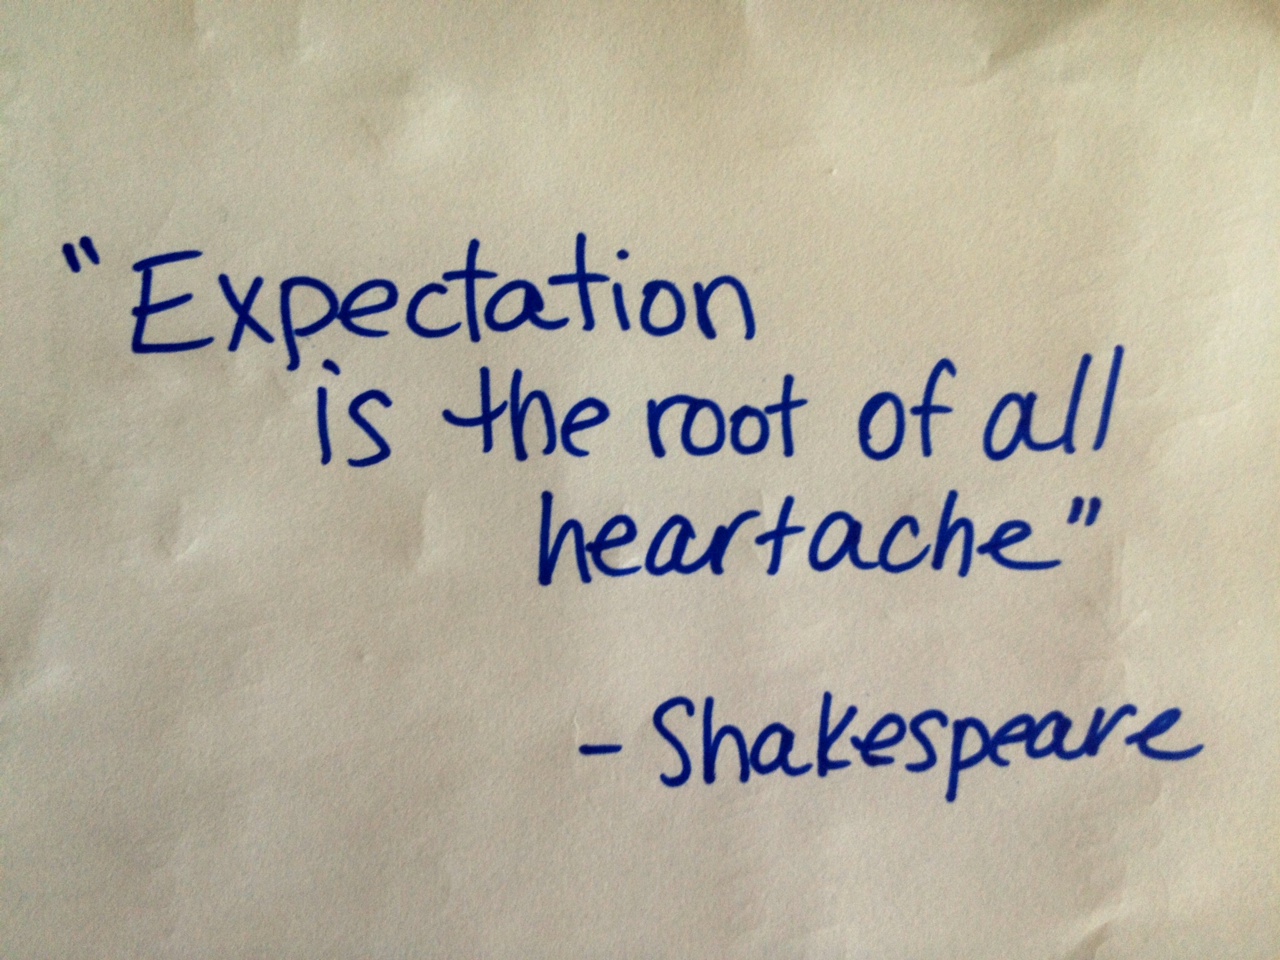 "Expectation
is the root of all
heartache"
- Shakespeare